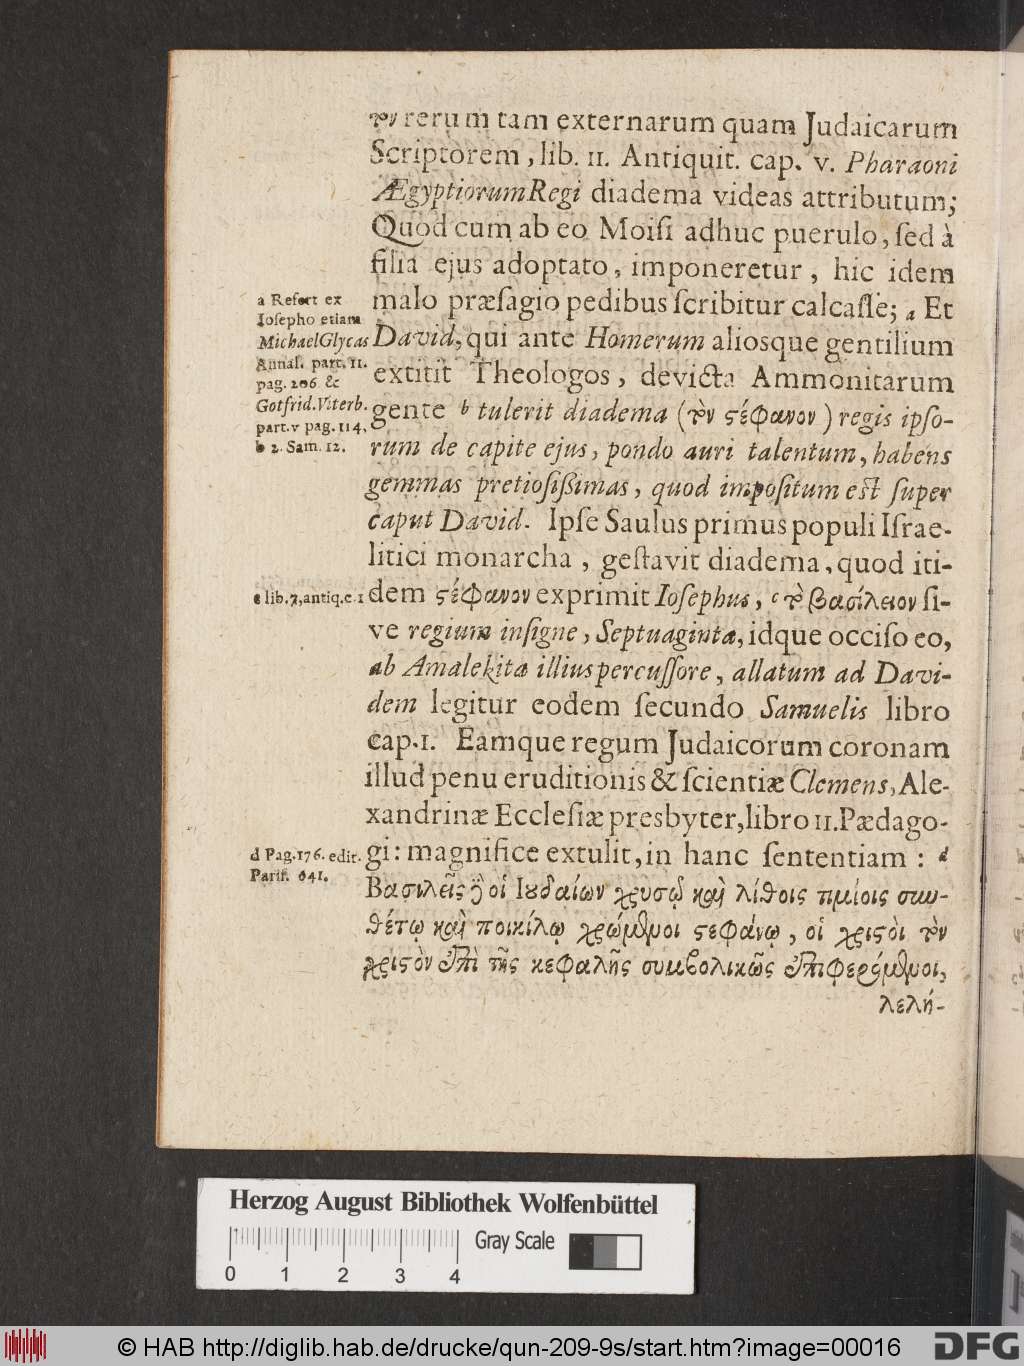 τὸν rerum tam externarum quam Judaicarum
Scriptorem, lib. II. Antiquit. cap. v. Pharaoni
Ægyptiorum Regi diadema videas attributum;
Quod cum ab eo Moiſi adhuc puerulo, ſed à
filia ejus adoptato, imponeretur, hic idem
malo præſagio pedibus ſcribitur calcaſſe; a Et
David, qui ante Homerum aliosque gentilium
extitit Theologos, devicta Ammonitarum
gente b tulerit diadema (τὸν ϛέφανον) regis ipſo-
rum de capite ejus, pondo auri talentum, habens
gemmas pretioſiſſimas, quod impoſitum eſt ſuper
caput David. Ipſe Saulus primus populi Iſrae-
litici monarcha, geſtavit diadema, quod iti-
dem ϛέφανον exprimit Ioſephus, c τὸ βασίλειον ſi-
ve regium inſigne, Septuaginta, idque occiſo eo,
ab Amalekita illius percuſſore, allatum ad Davi-
dem legitur eodem ſecundo Samuelis libro
cap. I. Eamque regum Judaicorum coronam
illud penu eruditionis & ſcientiæ Clemens, Ale-
xandrinæ Eccleſiæ presbyter, libro II. Pædago-
gi: magnifice extulit, in hanc ſententiam: d
Βασιλεῖς γὸ οἱ Ιουδαίων χρυσῷ καὶ λίθοις τιμίοις συν-
θέτῳ καὶ ποικίλῳ χρώμενοι ϛεφάνῳ, οἱ χριϛοὶ τὸν
χριϛὸν ἐπὶ τῆς κεφαλῆς συμβολικῶς ἐπιφερόμενοι,
λελή-
a Refert ex
Ioſepho etiam
Michael Glycas
Annal. part. II.
pag. 206 &
Gotfrid. Viterb.
part. v pag. 114,
b 2. Sam. 12.
c lib. 7, antiq. c. 1
d Pag. 176. edit.
Pariſ. 641.
Herzog August Bibliothek Wolfenbüttel
Gray Scale
0 1 2 3 4
© HAB http://diglib.hab.de/drucke/qun-209-9s/start.htm?image=00016
DFG